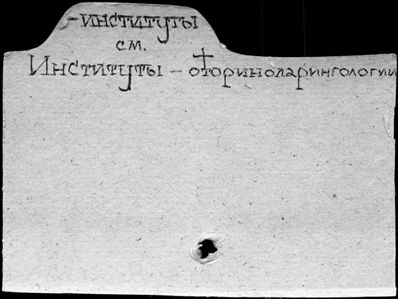 -институты
см.
Институты - оториноларингологии